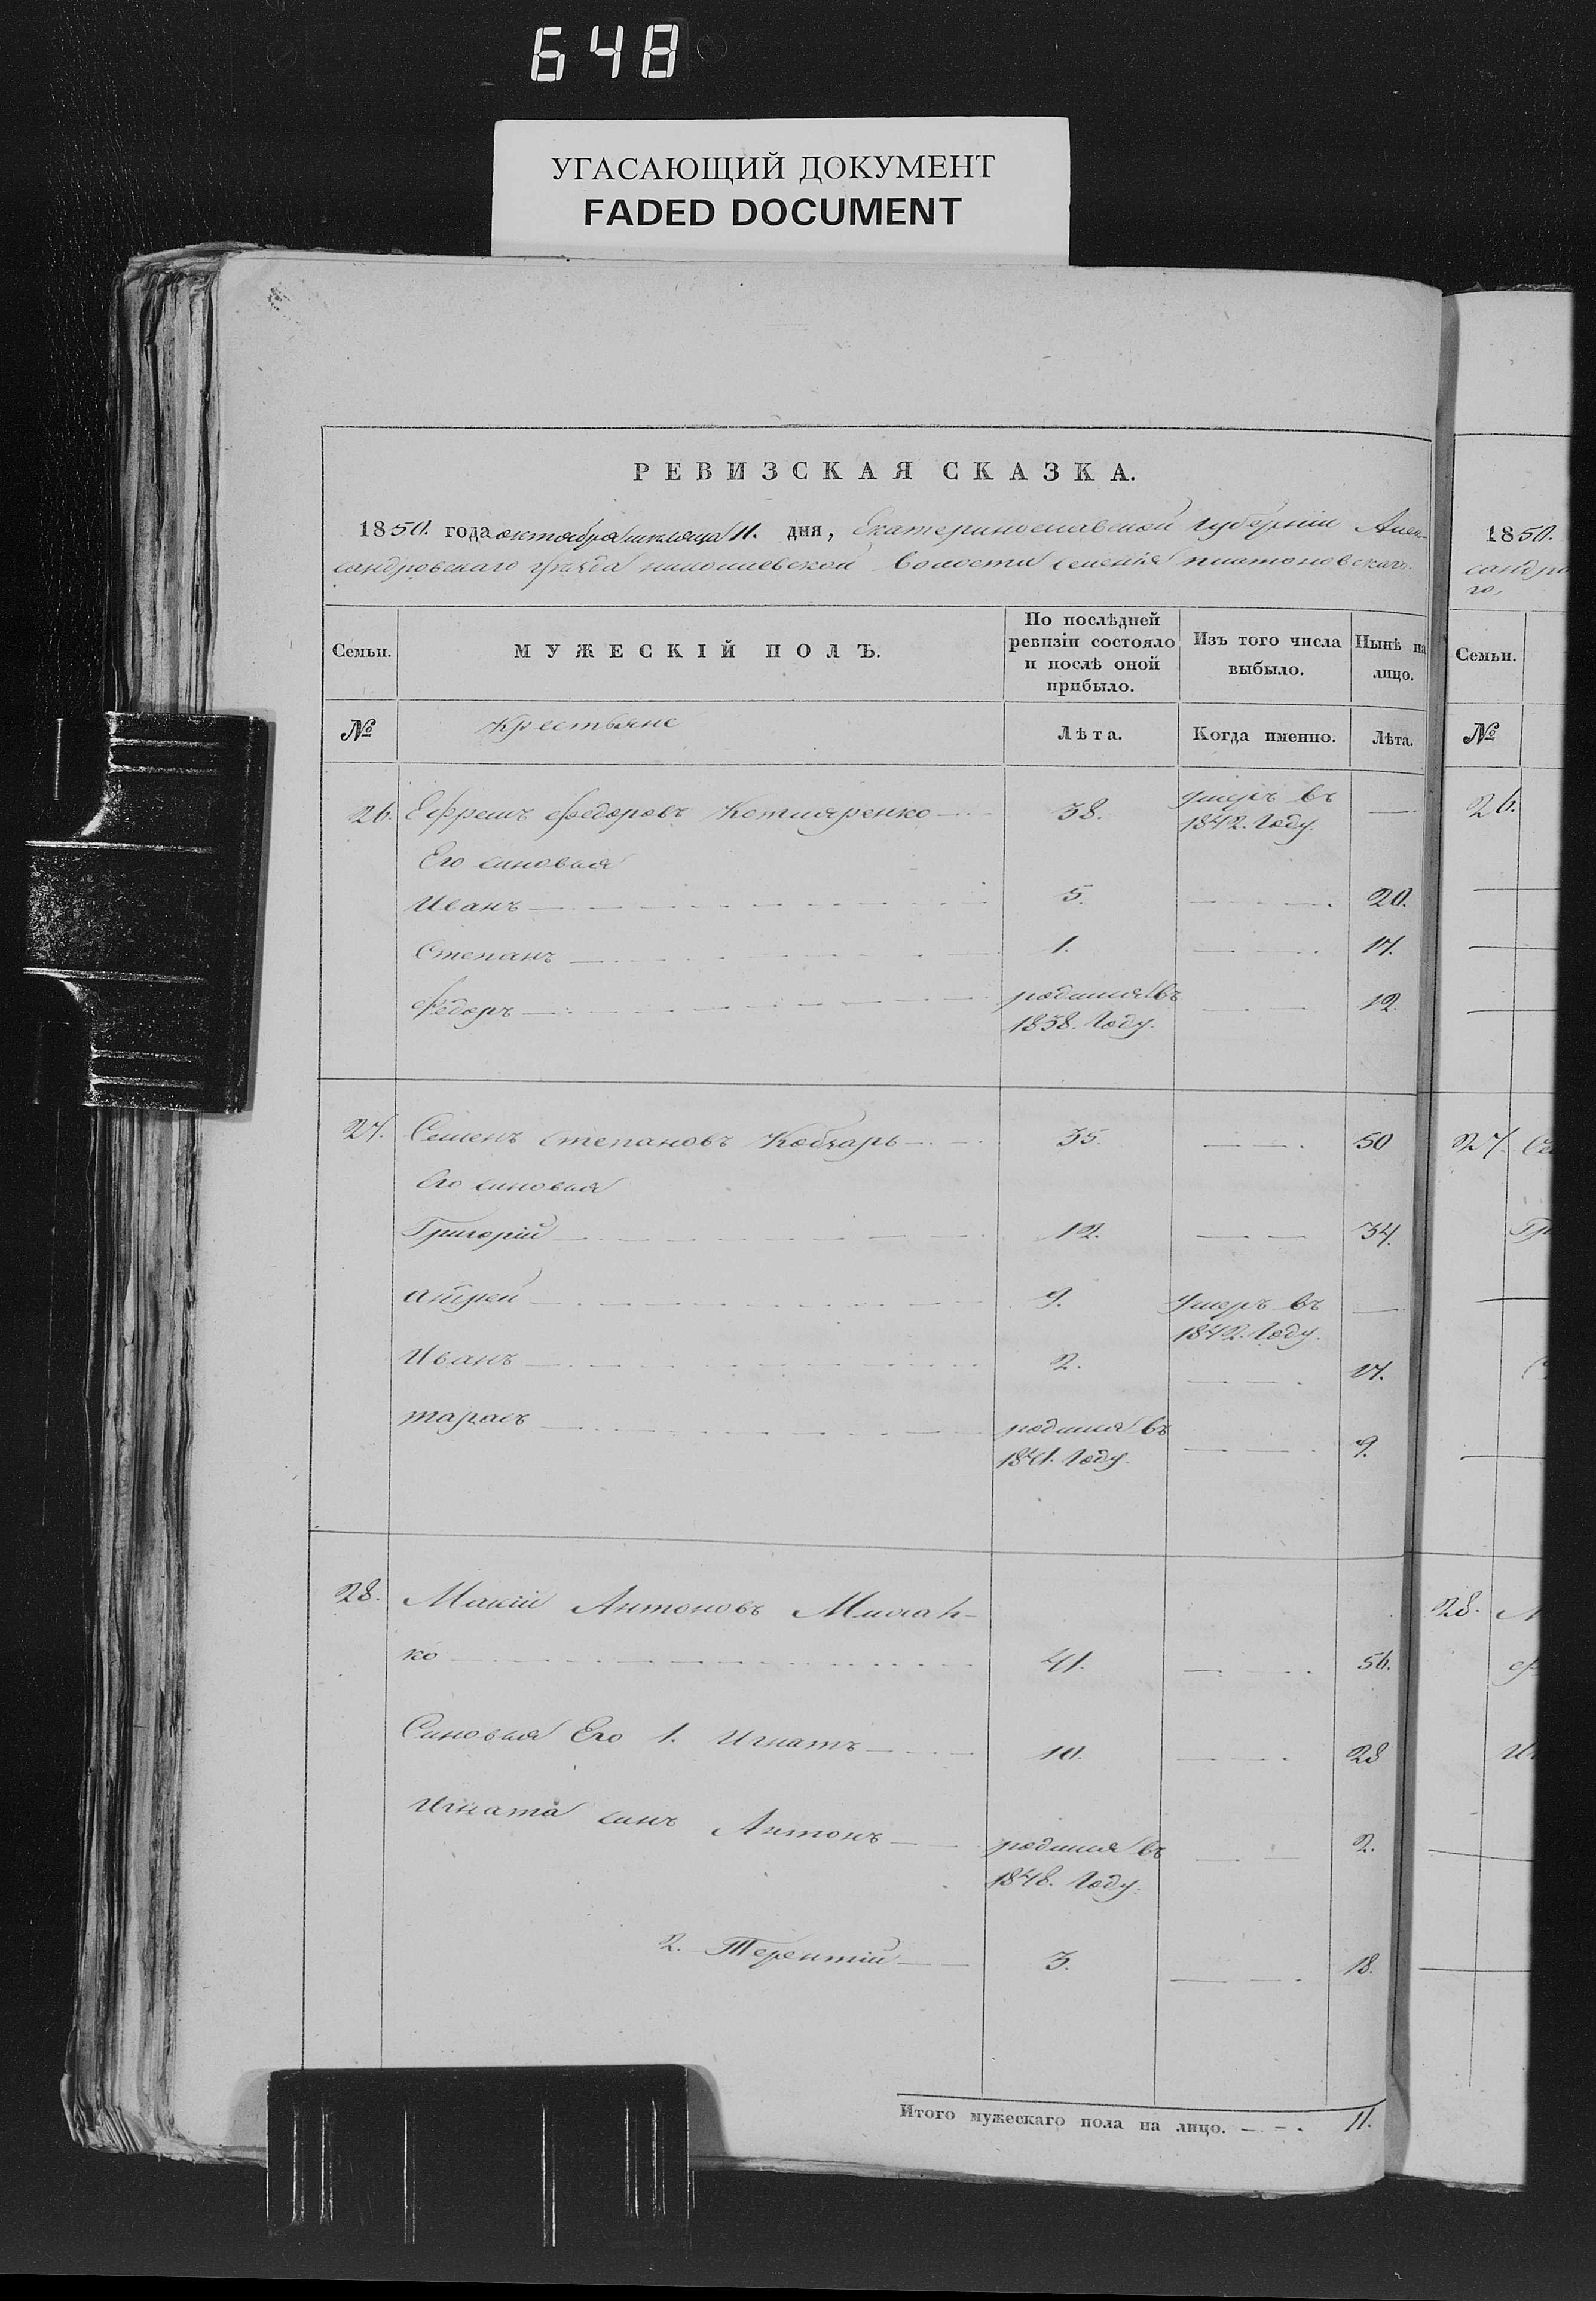 648
УГАСАЮЩИЙ ДОКУМЕНТ
FADED DOCUMENT
РЕВИЗСКАЯ СКАЗКА.
1850. года октября месяца 11. дня, Екатеринославской Губерніи Алек-
сандровскаго уезда николаевской волости селенія платоновскаго.
Семьи.
МУЖЕСКІЙ ПОЛЪ.
По послѣдней ревизіи состояло и послѣ оной прибыло.
Изъ того числа выбыло.
Нынѣ на лицо.
№
Крестьяне
Лѣта.
Когда именно.
Лѣта.
26. Ефремъ Федоровъ Котляренко 38. умеръ въ 1842. Году. —
Его синовья
Иванъ 5. — 20.
Степанъ 1. — 17.
Федоръ родился въ 1838. Году. — 12.
27. Семенъ Степановъ Кобзарь 35. — 50
Его синовья
Григорій 12. — 34.
андрей 9. Умеръ въ 1842. Году. —
Иванъ 2. — 17.
тарасъ родился въ 1841. Году. — 9.
28. Мокій Антоновъ
ко 41. — 56.
Синовья Его 1. Игнатъ 10. — 28
Игната синъ Антонъ родился въ 1848. Году. — 2.
2. Терентій 3. — 18.
Итого мужескаго пола на лицо. — 11.
1850.
сандро
го,
Семьи.
№
26.
27. Се
Гр
28. М